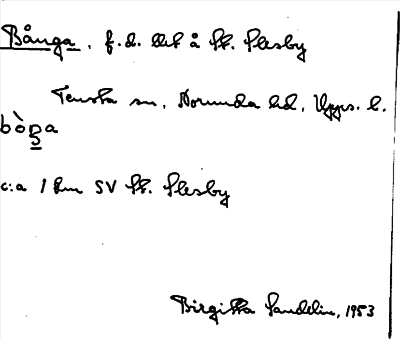 Bånga, f.d. litet å St. Plesby
Tensta sn, Norunda hd, Upps. l.
bòŋa
c:a 1 km SV St. Plesby
Birgitta Sandelin, 1953